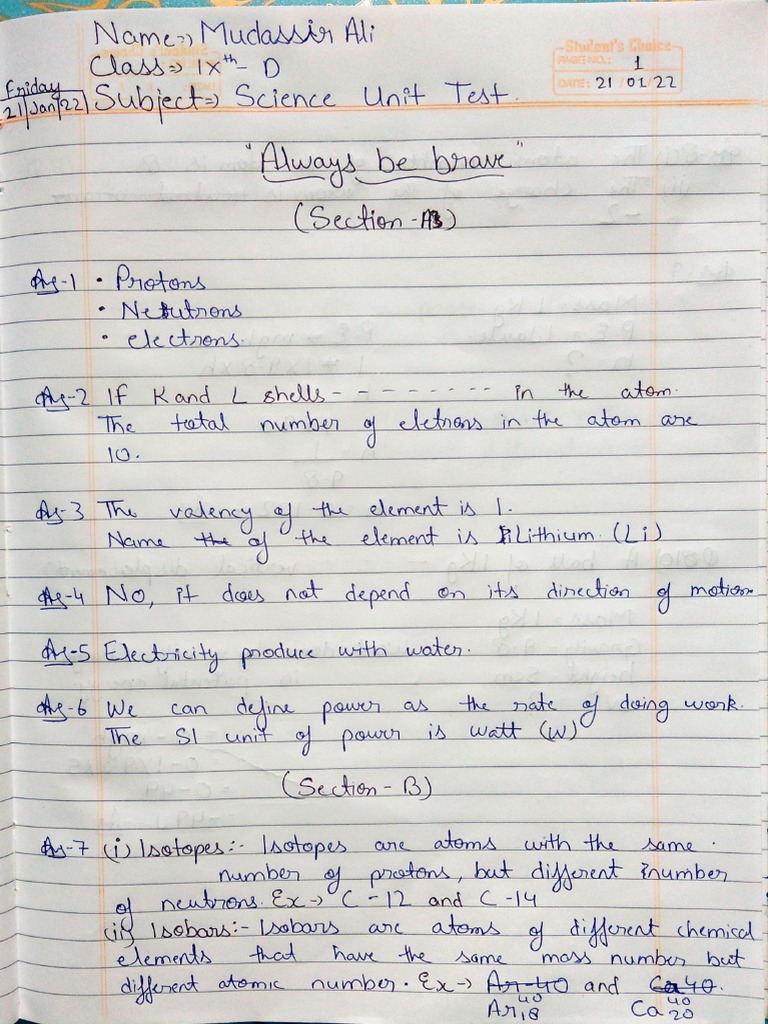 Name⇒ Mudassir Ali
Class⇒ IXth - D
Subject⇒ Science Unit Test.
Friday
21/Jan/22
Student's Choice
PAGE NO.: 1
DATE: 21/01/22
"Always be brave"
(Section - A)
Ans-1 • Protons
• Neutrons
• electrons.
Ans-2 If K and L shells - - - - - - - - in the atom.
The total number of eletrons in the atom are
10.
Ans-3 The valency of the element is 1.
Name the of the element is Lithium. (Li)
Ans-4 No, it does not depend on its direction of motion.
Ans-5 Electricity produce with water.
Ans-6 We can define power as the rate of doing work.
The SI unit of power is watt (W)
(Section - B)
Ans-7 (i) Isotopes:- Isotopes are atoms with the same
number of protons, but different number
of neutrons. Ex→ C-12 and C-14
(ii) Isobars:- Isobars are atoms of different chemical
elements that have the same mass number but
different atomic number. Ex→ Ar-40 and Ca40.
Ar 40 18 Ca 40 20